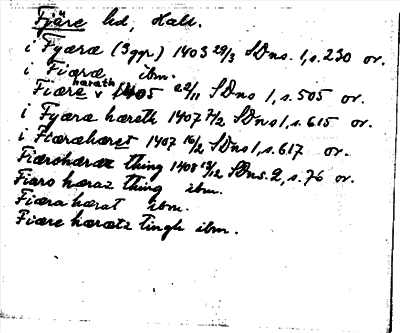 Fjäre hd, Hall.
i Fyæræ (3 ggr) 1403 29/3 SDns. 1, s. 230 or.
i Fiæræ ibm.
Fiære hæreth v 1405 22/11 SDns 1, s. 505 or.
i Fyæra hæreth 1407 7/2 SDns 1, s. 615 or.
i Fiæræhæret 1407 16/2 SDns 1, s. 617 or.
Fiærohæræz thing 1408 12/12 SDns. 2, s. 76 or.
Fiæro hæraz thing ibm.
Fiæra hærat ibm.
Fiære hærætz tingh ibm.